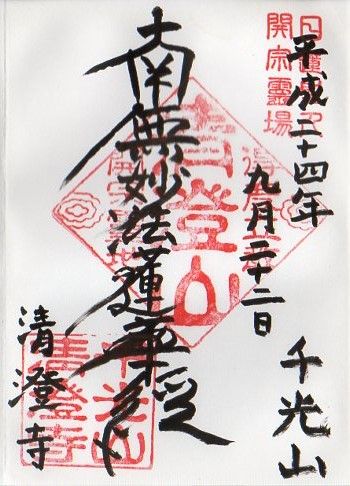 平成二十四年
九月二十二日
千光山
南無妙法蓮華経
清澄寺
開宗霊場
清澄山
千光山
清澄寺